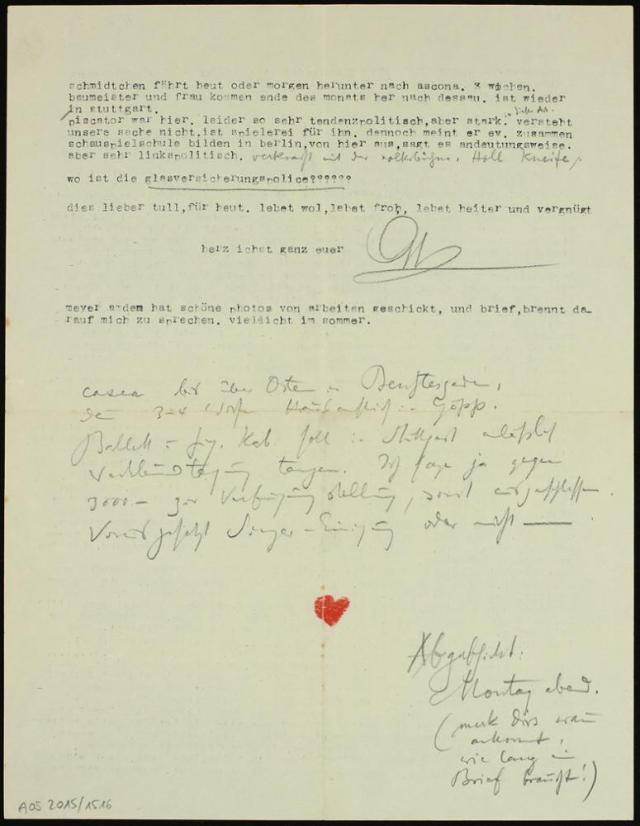 schmidtchen fährt heut oder morgen herunter nach ascona. 3 wochen.
baumeister und frau kommen ende des monats her nach dessau. ist wieder
in stuttgart.
piscator war hier. leider so sehr tendenzpolitisch,aber stark. versteht
unsere sache nicht.ist spielerei für ihn. dennoch meint er ev. zusammen
schauspielschule bilden in berlin,von hier aus,sagt es andeutungsweise.
aber sehr linkspolitisch. verkracht mit der volksbühne.
wo ist die glasversicherungspolice??????
dies lieber tull,für heut. lebet wol,lebet froh, lebet heiter und vergnügt
herz ichst ganz euer
meyer amdem hat schöne photos von arbeiten geschickt, und brief,brennt da-
rauf mich zu sprechen. vielleicht im sommer.
casca bis über Ostern in Berchtesgaden,
Ballett = fig. Kab. soll in Stuttgart anläßlich
tanzen. Ich sage ja gegen
3000.- zur Verfügung stellung, sonst ausgeschlossen.
Vorausgesetzt Singer-Einigung oder nicht
Abgeschickt:
Montag abend.
(merk dirs wann
ankommt,
wie lang ein
Brief braucht!)
AOS 2015/1516